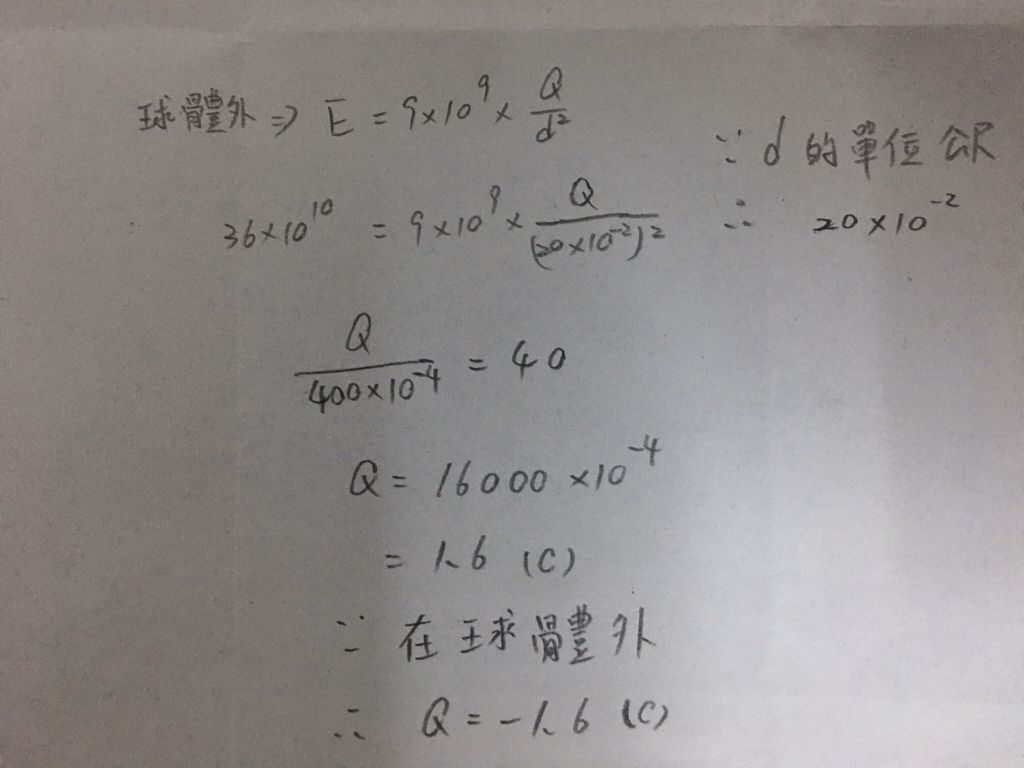 球體外 ⇒ E = 9×10⁹ × Q/d²
∵ d 的單位公尺
36×10¹⁰ = 9×10⁹ × Q/(20×10⁻²)²
∴ 20×10⁻²
Q/400×10⁻⁴ = 40
Q = 16000 ×10⁻⁴
= 1.6 (C)
∵ 在球體外
∴ Q = -1.6 (C)